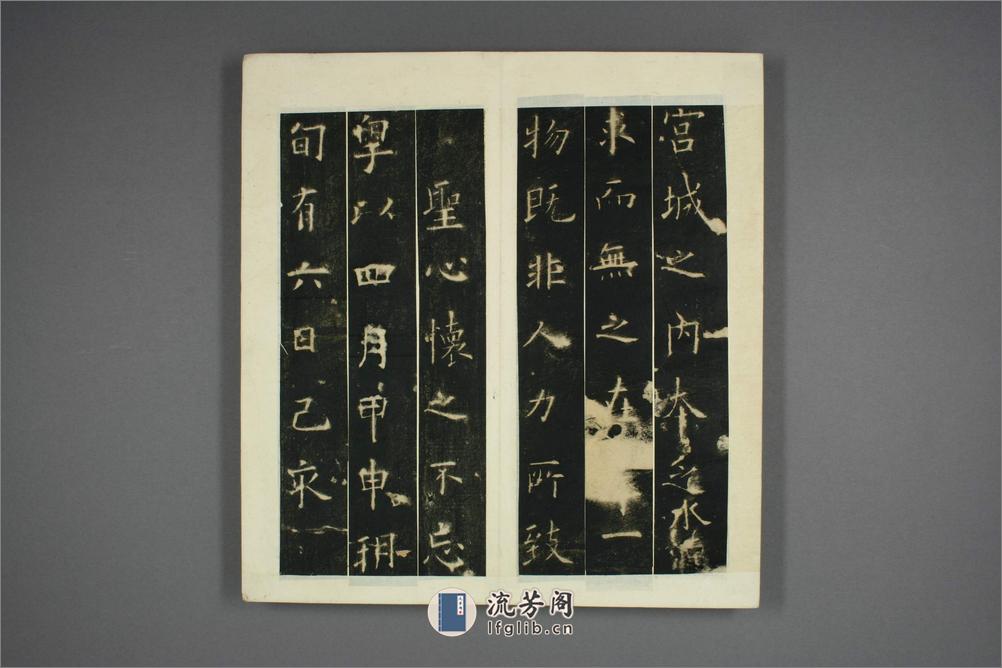 宫城之内本乏水源
求而無之在一
物既非人力所致
聖心懷之不忘
粤以四月甲申朔
旬有六日己亥
流芳阁
lfglib.cn